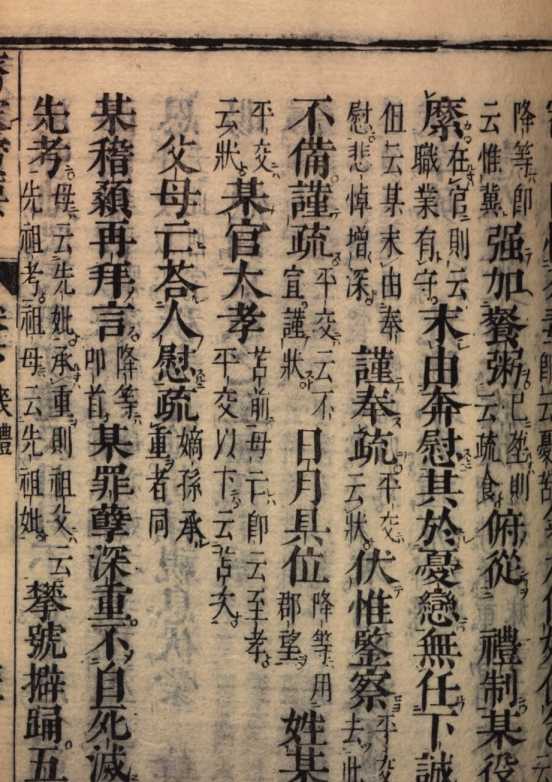 降等即云惟冀强加餐粥已塟則云疏食俯從 禮制某役
縻在官則云職業有守末由奔慰其於憂戀無任下誠
但云某末由奉慰悲悼增深謹奉疏平交云狀伏惟鑒察平交去此
不備謹疏平交云不宜謹狀日月具位降等用郡望姓某
平交云狀某官大孝苫前母亡即云至孝平交以下云苫次
父母亡荅人慰疏嫡孫承重者同
某稽顙再拜言降等叩首某罪孽深重不自死滅
先考母云先妣承重則祖父云先祖考祖母云先祖妣攀號擗踊五